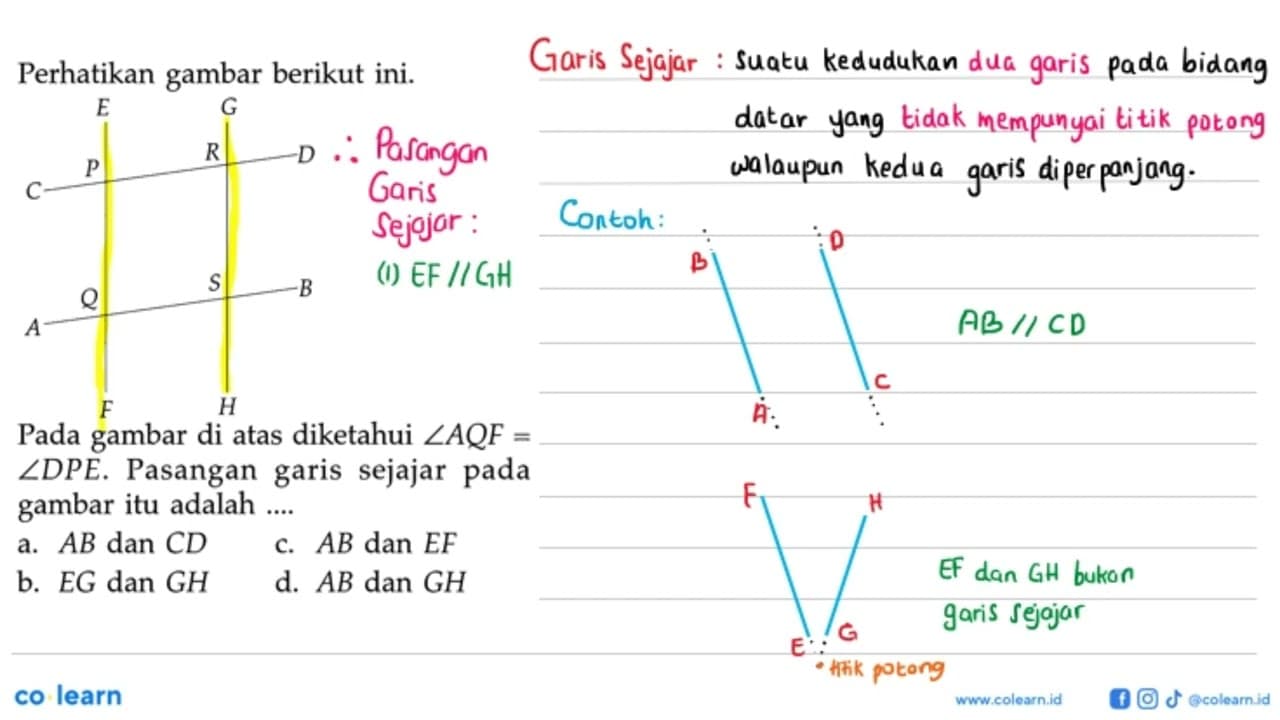 Perhatikan gambar berikut ini.
E
G
P
R
D
C
Q
S
B
A
F
H
Pada gambar di atas diketahui ∠AQF =
∠DPE. Pasangan garis sejajar pada
gambar itu adalah ....
a. AB dan CD
c. AB dan EF
b. EG dan GH
d. AB dan GH
∴ Pasangan
Garis
Sejajar :
(1) EF // GH
Garis Sejajar : suatu kedudukan dua garis pada bidang
datar yang tidak mempunyai titik potong
walaupun kedua garis diperpanjang.
Contoh:
B
D
AB // CD
C
A
F
H
EF dan GH bukan
garis sejajar
E
G
titik potong
co learn
www.colearn.id
@colearn.id